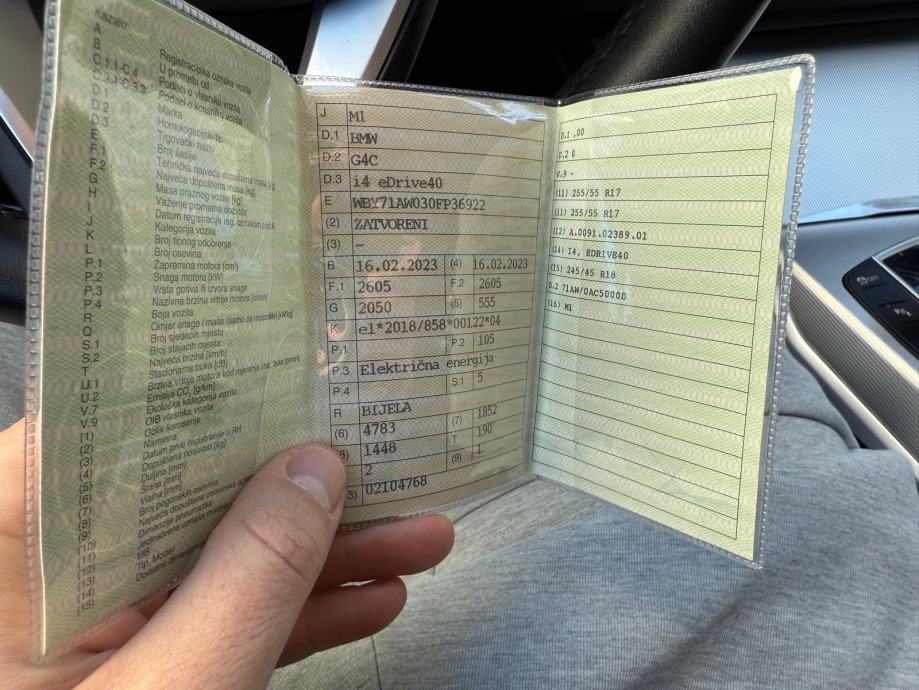 Kazalo:
A Registracijska oznaka vozila
B U prometu od
C.1.1-C.4 Podaci o vlasniku vozila
C.3.1-C.3.3 Podaci o korisniku vozila
D.1 Marka
D.2 Homologacijski tip
D.3 Trgovački naziv
E Broj šasije
F.1 Tehnička najveća dopuštena masa [kg]
F.2 Najveća dopuštena masa [kg]
G Masa praznog vozila [kg]
H Važenje prometne dozvole
I Datum registracije reg. oznakom pod A
J Kategorija vozila
K Broj tipnog odobrenja
L Broj osovina
P.1 Zapremina motora [cm³]
P.2 Snaga motora [kW]
P.3 Vrsta goriva ili izvora snage
P.4 Nazivna brzina vrtnje motora [o/min]
R Boja vozila
Q Omjer snage i mase (samo za motocikle) [kW/kg]
S.1 Broj sjedećih mjesta
S.2 Broj stajaćih mjesta
T Najveća brzina [km/h]
U.1 Stacionarna buka [dB]
U.2 Brzina vrtnje motora kod mjerenja stac. buke [o/min]
V.7 Emisija CO₂ [g/km]
V.9 Ekološka kategorija vozila
(1) OIB vlasnika vozila
(2) Oblik karoserije
(3) Namjena
(4) Datum prve registracije u RH
(5) Dopuštena nosivost [kg]
(6) Duljina [mm]
(7) Širina [mm]
(8) Visina [mm]
(9) Broj pogonskih osovina
(10) Najveća dopuštena osovinska
(11) Dimenzije pneumatika
(12) Jedinstvena oznaka modela
(13) MB
(14) Tip, Model
(15) Dodatne dimenzije
J M1
D.1 BMW
D.2 G4C
D.3 i4 eDrive40
E WBY71AW030FP36922
(2) ZATVORENI
(3) -
B 16.02.2023 (4) 16.02.2023
F.1 2605 F.2 2605
G 2050 (5) 555
K e1*2018/858*00122*04
P.1 P.2 105
P.3 Električna energija
P.4 S.1 5
R BIJELA
(6) 4783 (7) 1852
8) 1448 T 190
2 (9) 1
3) 02104768
D.1 ,00
D.2 0
V.9 -
(11) 255/55 R17
(11) 255/55 R17
(12) A.0091.02389.01
(14) I4, EDRIVE40
(15) 245/45 R18
D.2 71AW/0AC50000
(16) M1